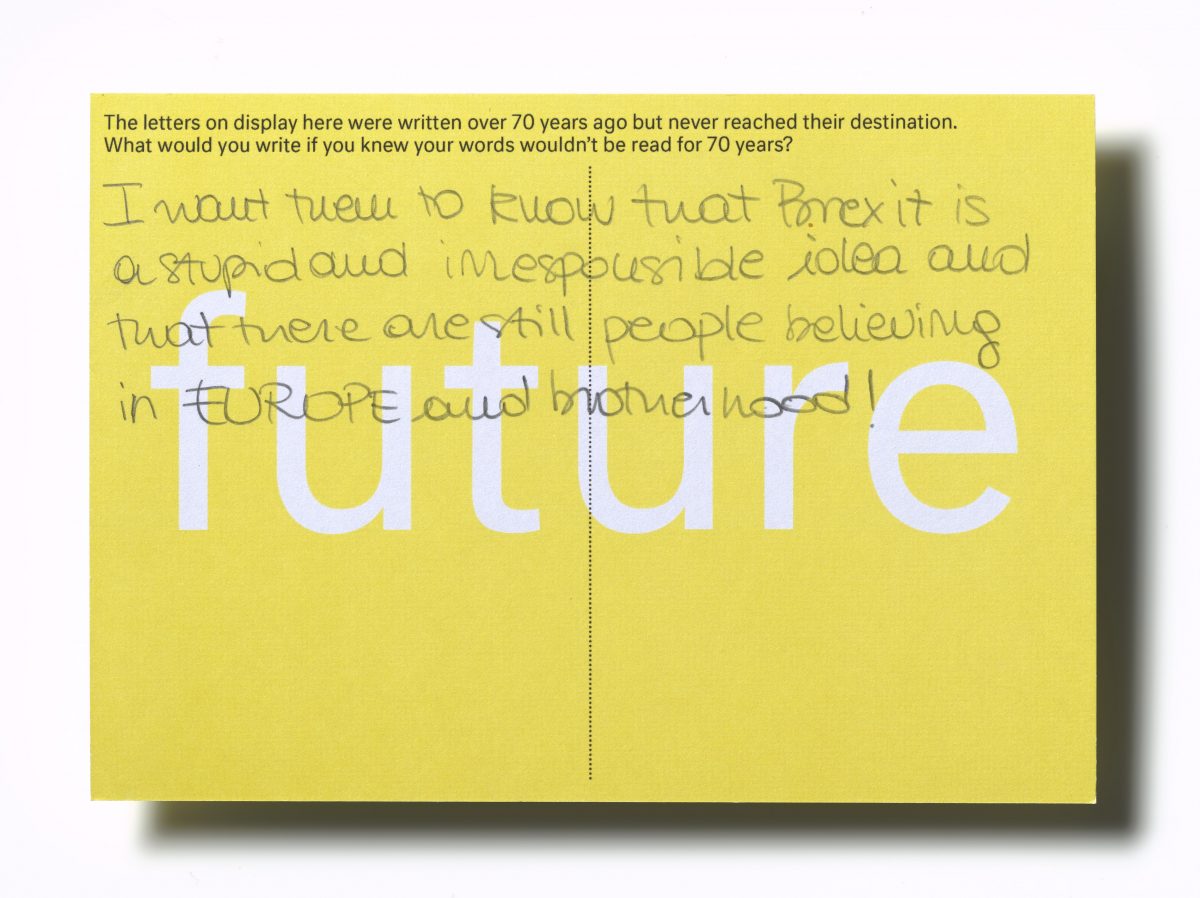 The letters on display here were written over 70 years ago but never reached their destination.
What would you write if you knew your words wouldn't be read for 70 years?
I want them to know that Brexit is
a stupid and irresponsible idea and
that there are still people believing
in EUROPE and brotherhood!
future